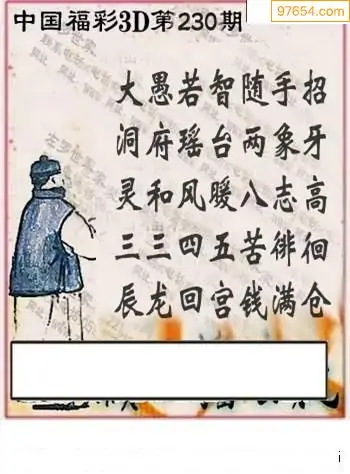 97654.com
中国福彩3D第230期
大愚若智随手招
洞府瑶台两象牙
灵和风暖八志高
三三四五苦徘徊
辰龙回宫钱满仓
i